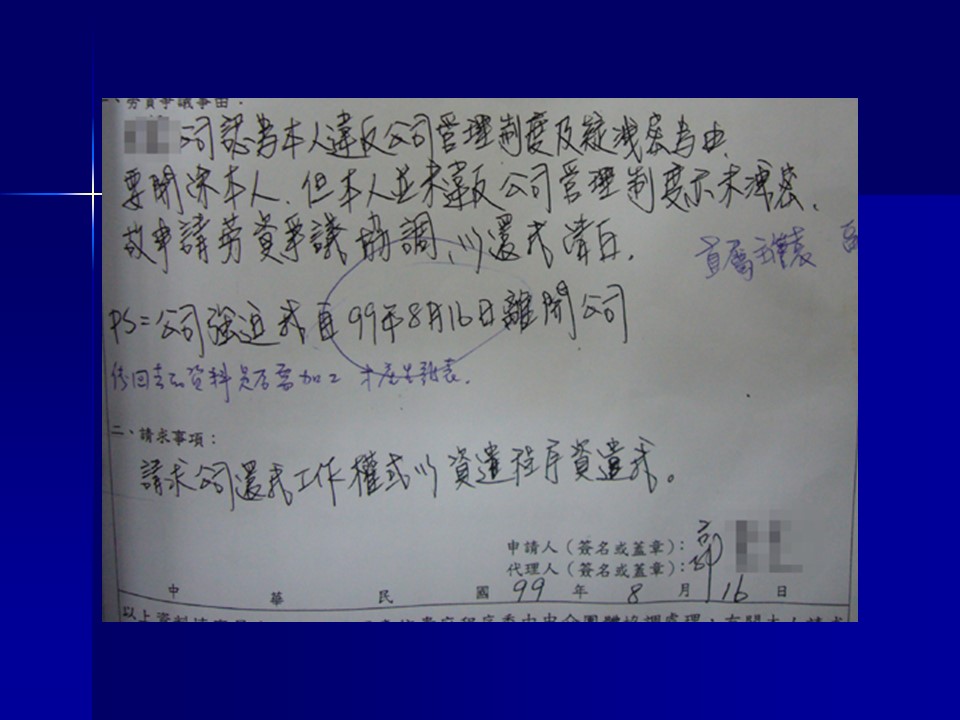 一、勞資爭議事由：
公司認為本人違反公司管理制度及疑洩密為由,
要開除本人,但本人並未違反公司管理制度亦未洩密,
故申請勞資爭議協調,以還我清白.
直屬主管表
PS=公司強迫我自99年8月16日離開公司
資料是否需加工 才產生報表.
二、請求事項：
請求公司還我工作權或以資遣程序資遣我。
申請人（簽名或蓋章）：
代理人（簽名或蓋章）：
中華民國 99 年 8 月 16 日
以上資料